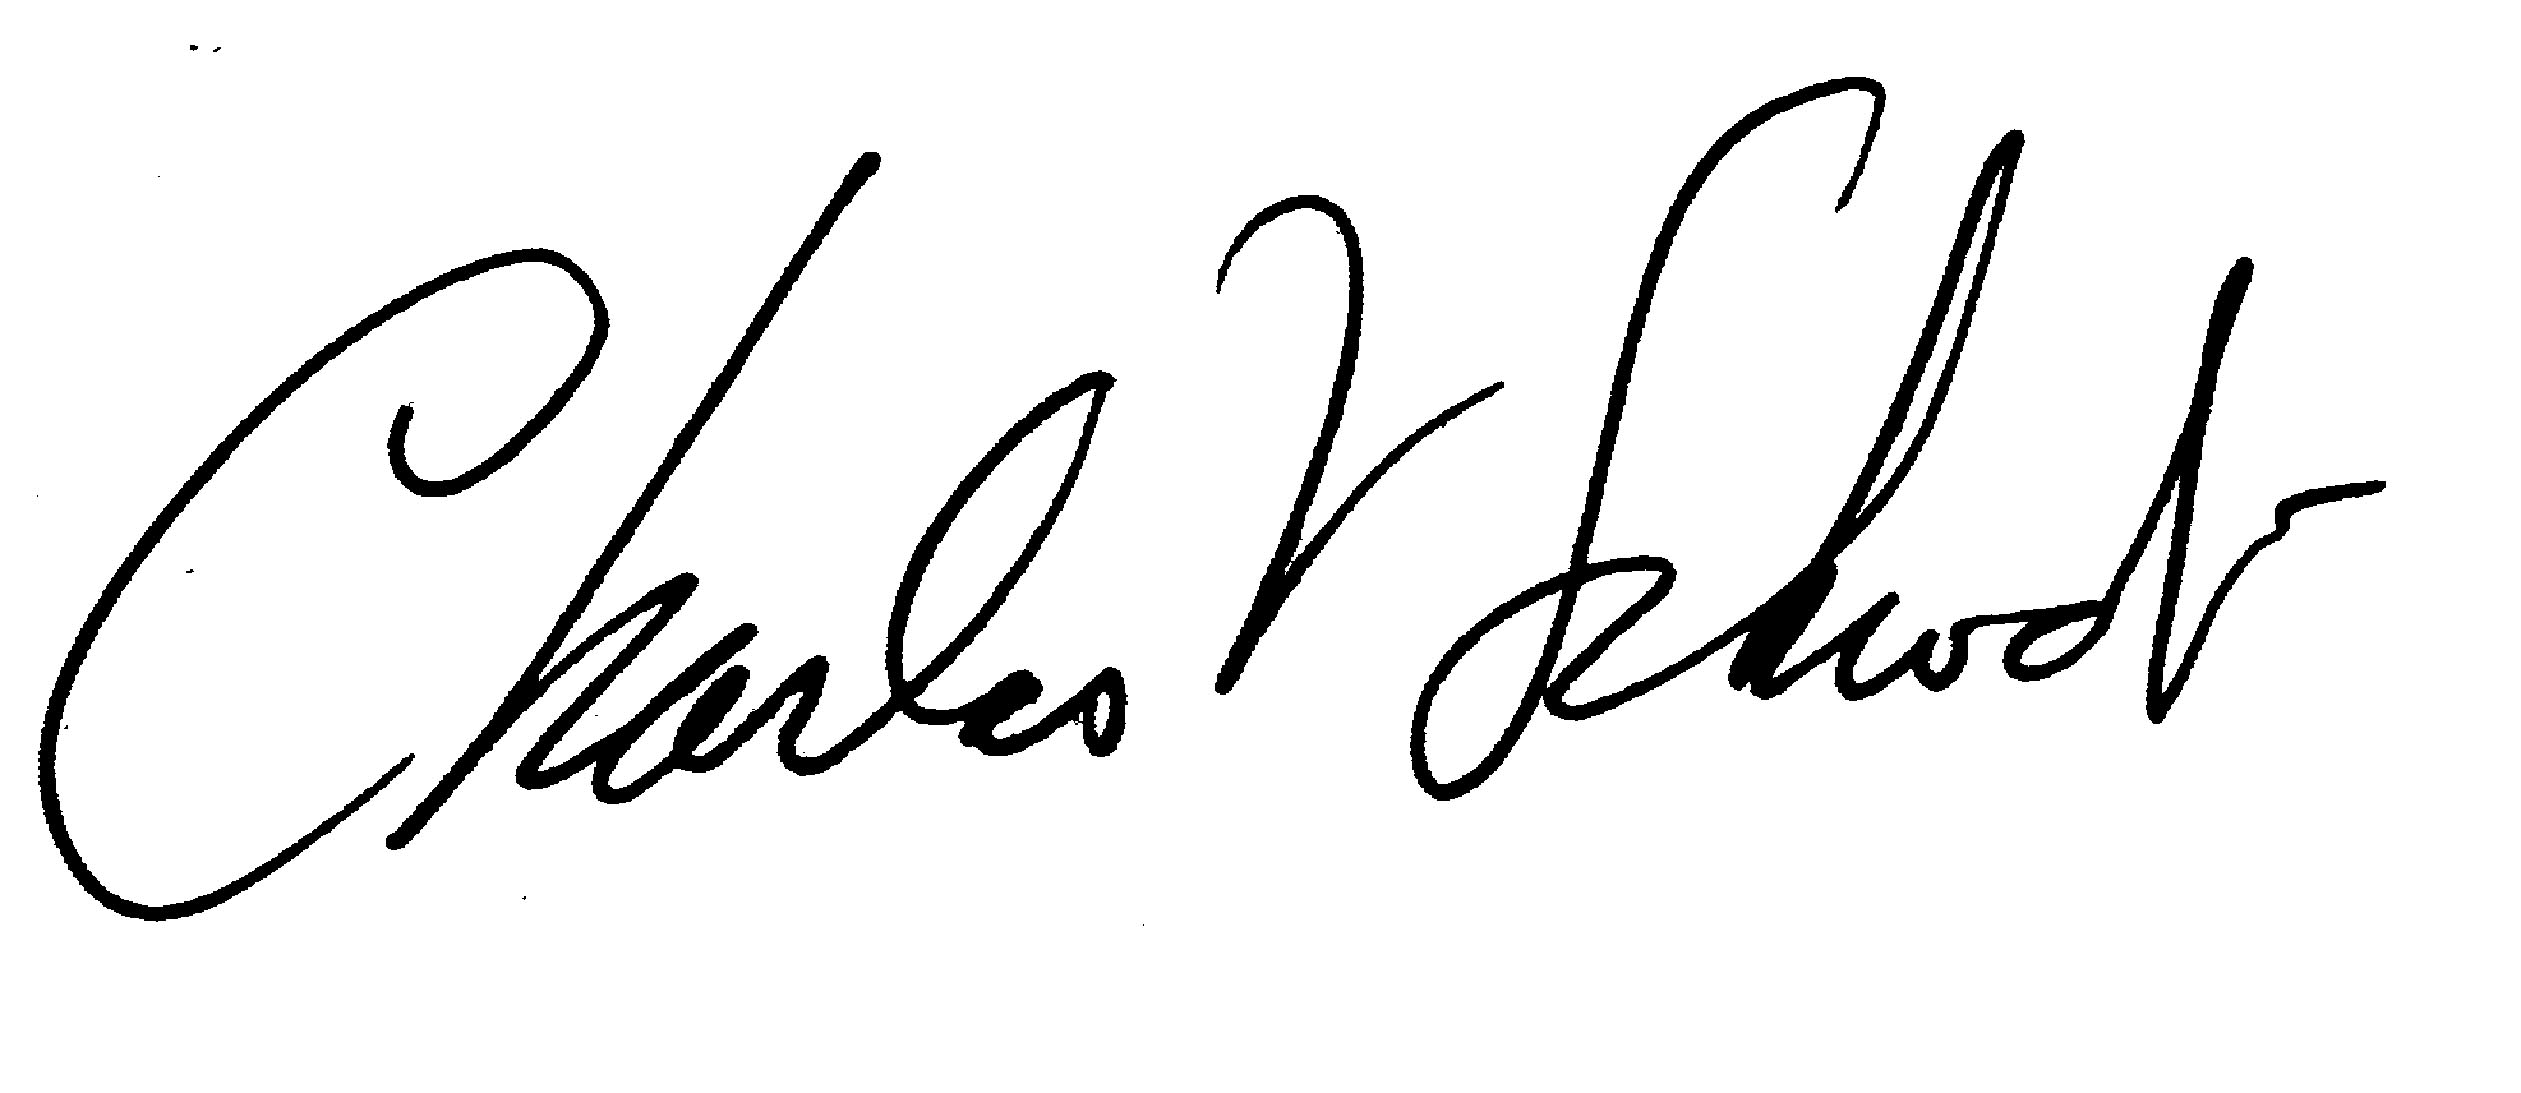 Charles V Schwodr